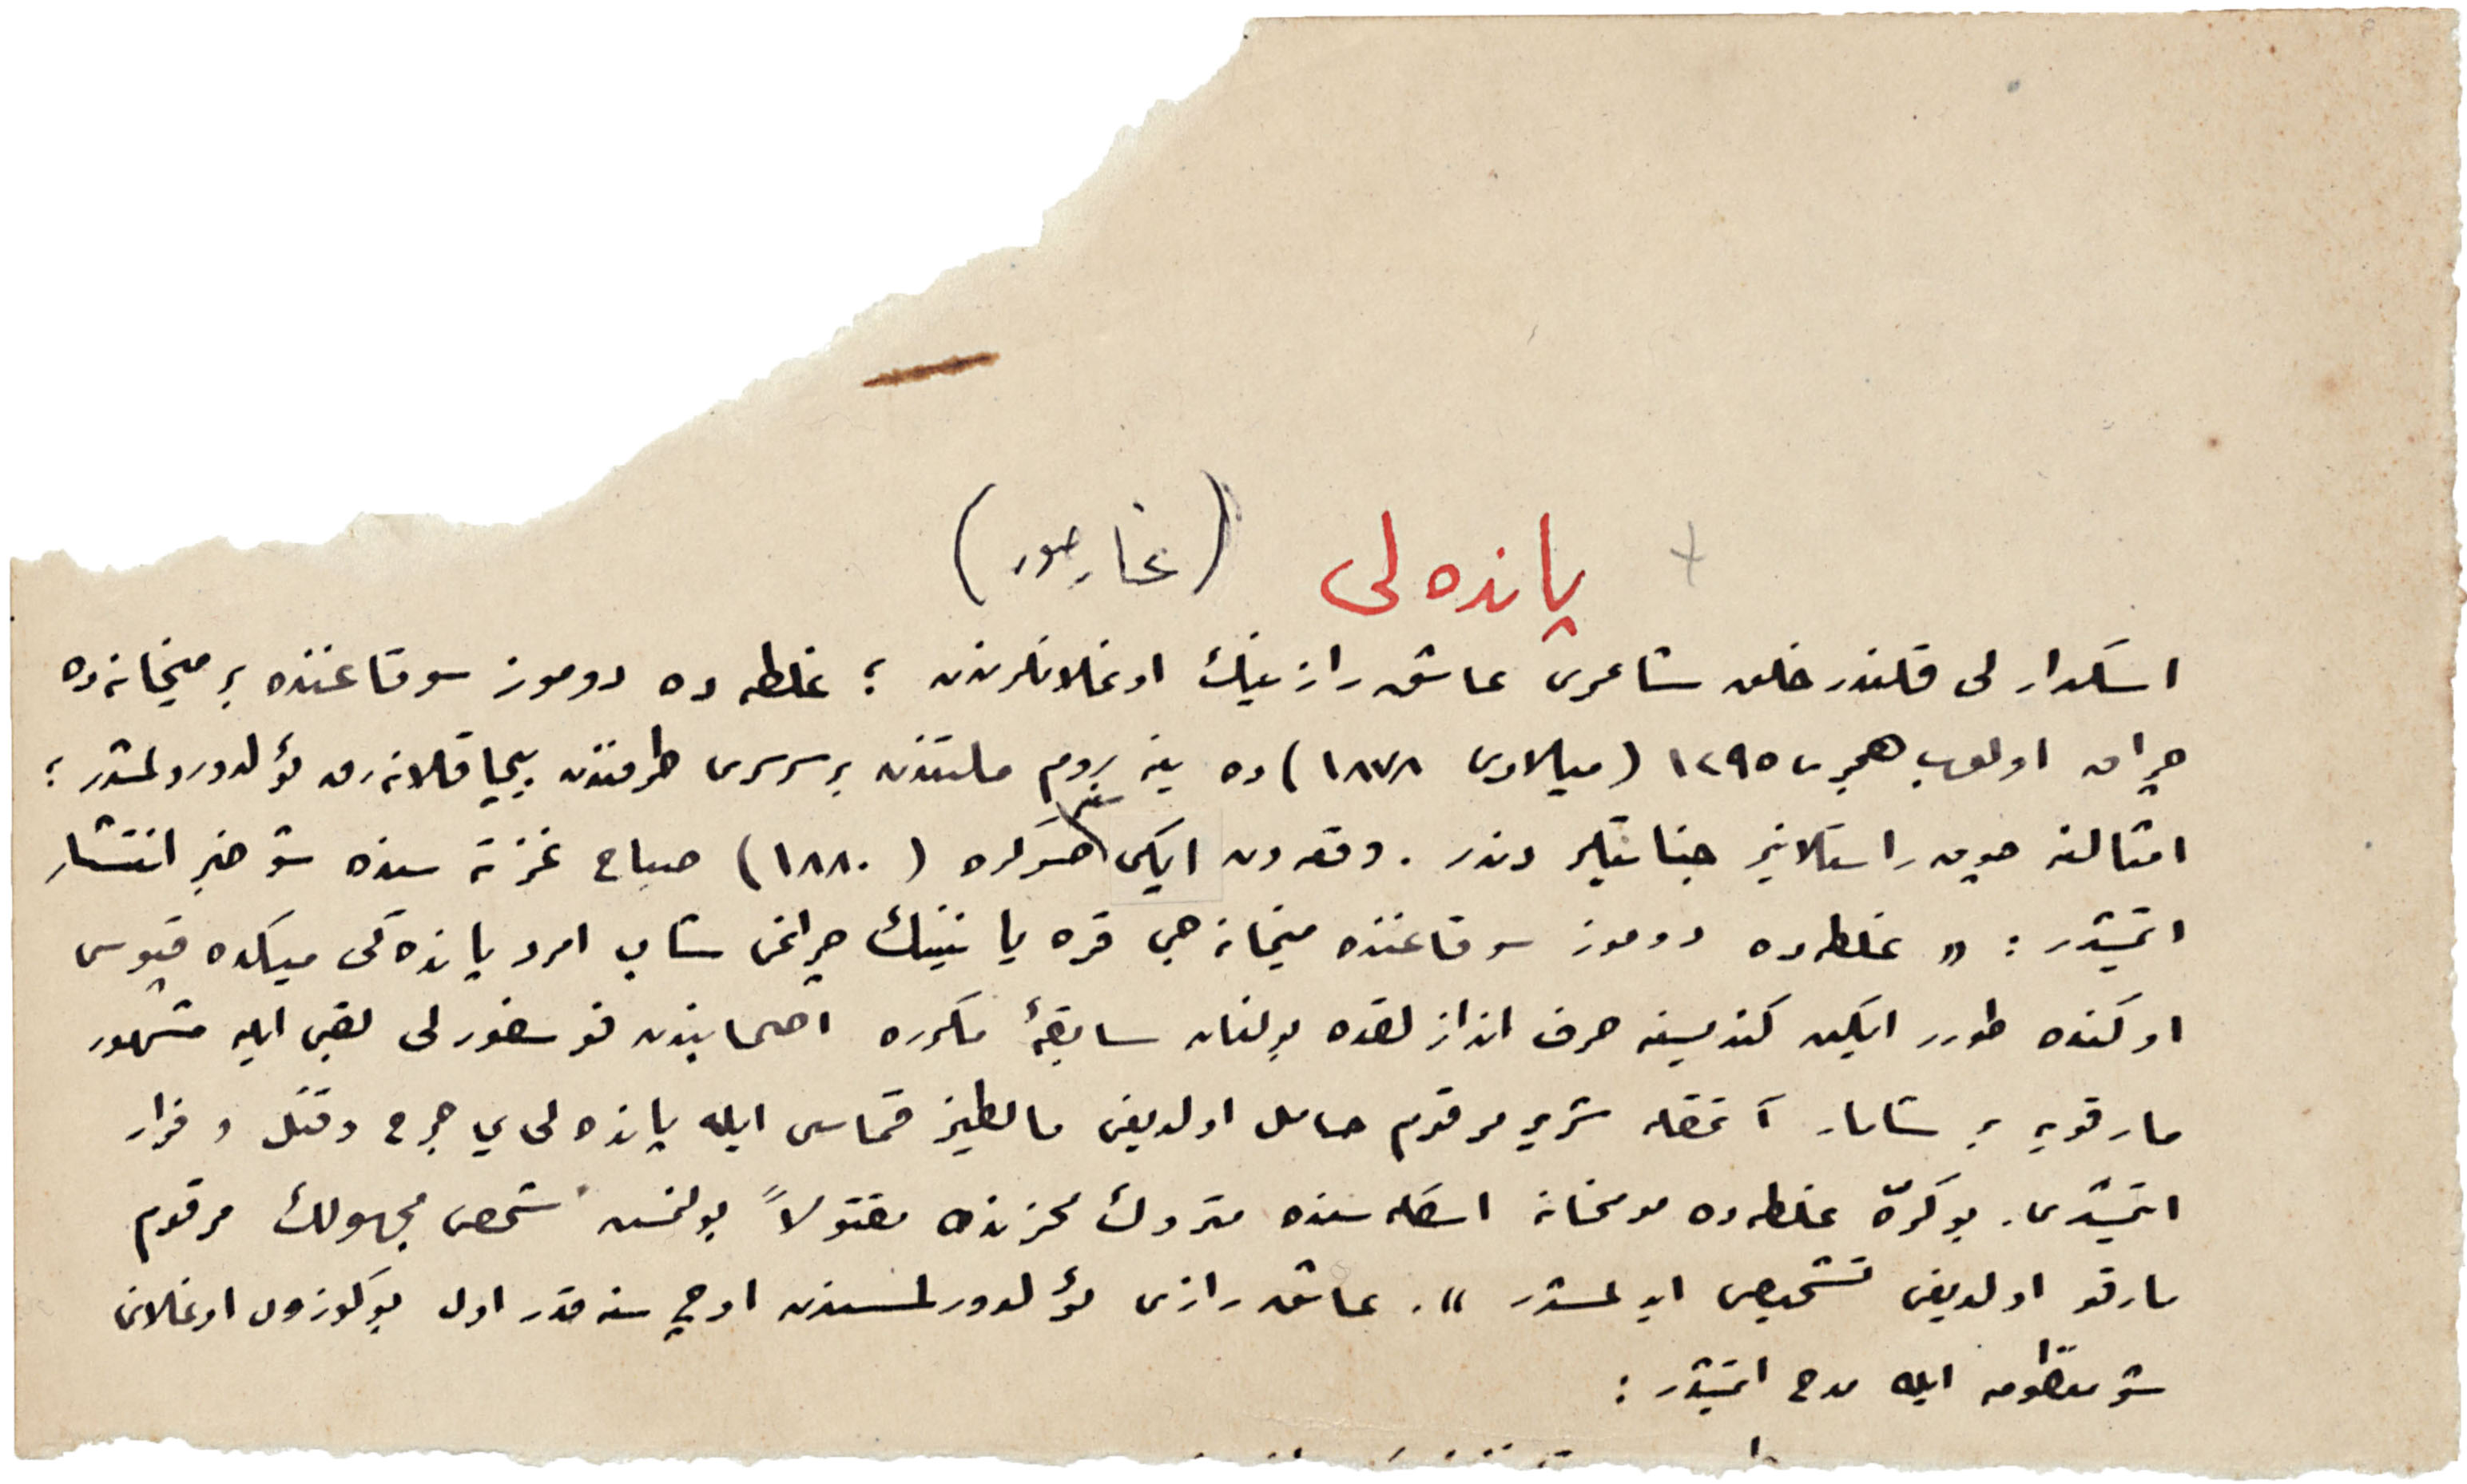 پانده‌لی (غارصور)
اسکدارلی قلندر خلق شاعری عاشق رازینك اوغلانلرندن ؛ غلطه‌ده دوموز سوقاغنده بر میخانه‌ده
چراق اولوب هجری ١٢٩٥ (میلادی ١٨٧٨) ده ینه روم ملتندن بر سرسری طرفندن بیچاقلانه‌رق ئولدورولمشدر ؛
امثالنه چوق راستلانیر جنایتلردندر . وقعه‌دن ایکی سنه صوکره (١٨٨٠) صباح غزته سنده شو خبر انتشار
ایتمیشدر : « غلطه‌ده دوموز سوقاغنده میخانه‌جی قره یانینك چراغی شاب امرد پانده‌لی میکده قپوسی
اوکنده طورر ایکن کندیسنه حرف اندازلقده بولنان سابقهٔ مکرره اصحابندن فوسفورلی لقبی ایله مشهور
مارقویه بر شامار آتمقله شریر مرقوم حامل اولدیغی مالطیز قماسی ایله پانده‌لی‌یی جرح و قتل و فرار
ایتمیشدی. بو کرّه غلطه‌ده مومخانه اسکله سنده متروك مخزنده مقتولاً بولنمش شخص مجهولك مرقوم
مارقو اولدیغی تشخیص ایدلمشدر ». عاشق رازی ئولدورلمسندن اوچ سنه قدر اول بو کوزل اوغلانی
شو منظومه ایله مدح ایتمیشدر :